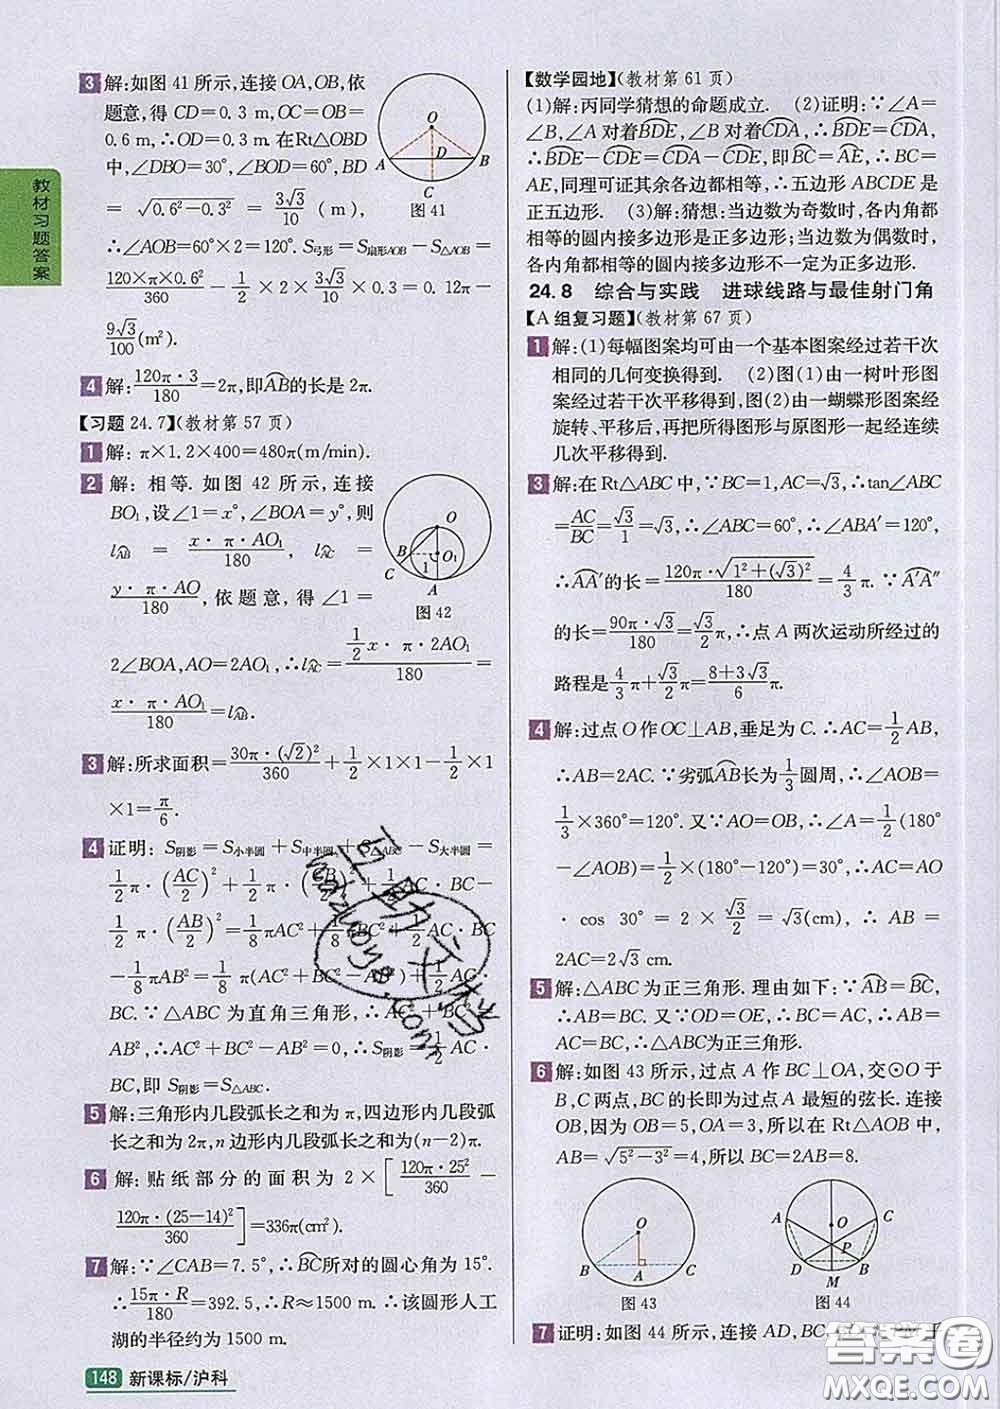 教材习题答案
3 解:如图 41 所示,连接 OA,OB,依
题意,得 CD=0.3 m,OC=OB=
0.6 m,∴OD=0.3 m.在Rt△OBD
中,∠DBO=30°,∠BOD=60°,BD
=√(0.6²-0.3²)=3√3/10 (m),
图 41
∴∠AOB=60°×2=120°. S弓形=S扇形AOB-S△AOB=
120×π×0.6²/360-1/2×2×3√3/10×0.3=0.12π-
9√3/100(m²).
4 解:120π·3/180=2π,即AB的长是 2π.
【习题 24.7】(教材第 57 页)
1 解: π×1.2×400=480π(m/min).
2 解: 相等. 如图 42 所示,连接
BO₁,设∠1=x°,∠BOA=y°,则
l AB = x·π·AO₁/180, l AC =
y·π·AO/180,依题意,得∠1=
图 42
2∠BOA,AO=2AO₁,∴l AC = (1/2)x·π·2AO₁/180 =
x·π·AO₁/180=l AB.
3 解:所求面积=30π·(√2)²/360+1/2×1×1-1/2×1
×1=π/6.
4 证明: S阴影=S小半圆+S中半圆+S△ABC-S大半圆=
1/2π·(AC/2)²+1/2π·(CB/2)²+1/2AC·BC-
1/2π·(AB/2)²=1/8πAC²+1/8πBC²+1/2AC·BC
-1/8πAB²=1/8π(AC²+BC²-AB²)+1/2AC·
BC.∵△ABC 为直角三角形,∴AC²+BC²=
AB²,∴AC²+BC²-AB²=0,∴S阴影=1/2AC·
BC,即 S阴影=S△ABC.
5 解:三角形内几段弧长之和为 π,四边形内几段弧
长之和为 2π,n 边形内几段弧长之和为(n-2)π.
6 解:贴纸部分的面积为 2×[120π·25²/360-
120π·(25-14)²/360]=336π(cm²).
7 解:∵∠CAB=7.5°,∴BC所对的圆心角为 15°.
∴15π·R/180=392.5,∴R≈1500 m.∴该圆形人工
湖的半径约为 1500 m.
148 新课标/沪科
【数学园地】(教材第 61 页)
(1)解:丙同学猜想的命题成立. (2)证明:∵∠A=
∠B,∠A 对着BDE,∠B 对着CDA,∴BDE=CDA,
∴BDE-CDE=CDA-CDE,即BC=AE,∴BC=
AE,同理可证其余各边都相等,∴五边形 ABCDE 是
正五边形. (3)解:猜想:当边数为奇数时,各内角都
相等的圆内接多边形是正多边形;当边数为偶数时,
各内角都相等的圆内接多边形不一定为正多边形.
24.8 综合与实践 进球线路与最佳射门角
【A 组复习题】(教材第 67 页)
1 解:(1)每幅图案均可由一个基本图案经过若干次
相同的几何变换得到. (2)图(1)由一树叶形图
案经过若干次平移得到,图(2)由一蝴蝶形图案经
旋转、平移后,再把所得图形与原图形一起经连续
几次平移得到.
3 解:在 Rt△ABC 中,∵BC=1,AC=√3,∴tan∠ABC
=AC/BC=√3/1=√3,∴∠ABC=60°,∴∠ABA′=120°,
∴AA′的长=120π·√(1²+(√3)²)/180=4/3π.∵A′A″
的长=90π·√3/180=√3/2π,∴点 A 两次运动所经过的
路程是4/3π+√3/2π=(8+3√3)/6π.
4 解:过点 O 作 OC⊥AB,垂足为 C.∴AC=1/2AB,
∴AB=2AC.∵劣弧AB长为1/3圆周,∴∠AOB=
1/3×360°=120°.又∵AO=BO,∴∠A=1/2(180°
-∠AOB)=1/2×(180°-120°)=30°.∴AC=AO
·cos 30°=2×√3/2=√3(cm),∴AB=
2AC=2√3 cm.
5 解:△ABC 为正三角形. 理由如下:∵AB=BC,
∴AB=BC.又∵OD=OE,∴BC=AC,∴AB=
AC=BC,∴△ABC为正三角形.
6 解:如图 43 所示,过点 A 作 BC⊥OA,交⊙O 于
B,C 两点,BC 的长即为过点 A 最短的弦长. 连接
OB,因为 OB=5,OA=3,所以在 Rt△AOB 中,
AB=√(5²-3²)=4,所以 BC=2AB=8.
图 43
图 44
7 证明:如图 44 所示,连接 AD,BC,
答案圈
MXQE.COM